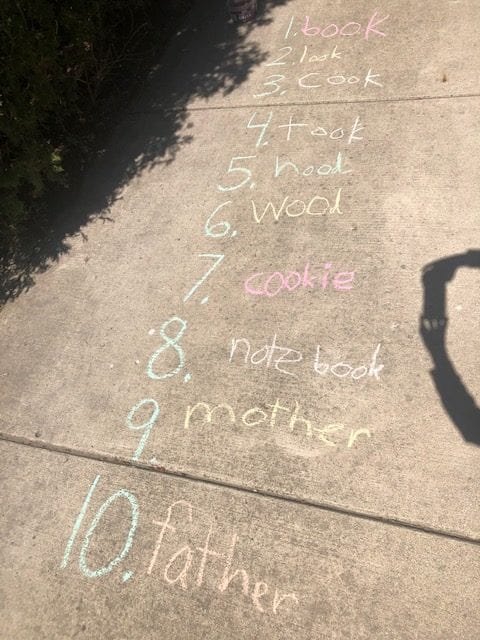 1. book
2. look
3. cook
4. took
5. hood
6. wood
7. cookie
8. note book
9. mother
10. father